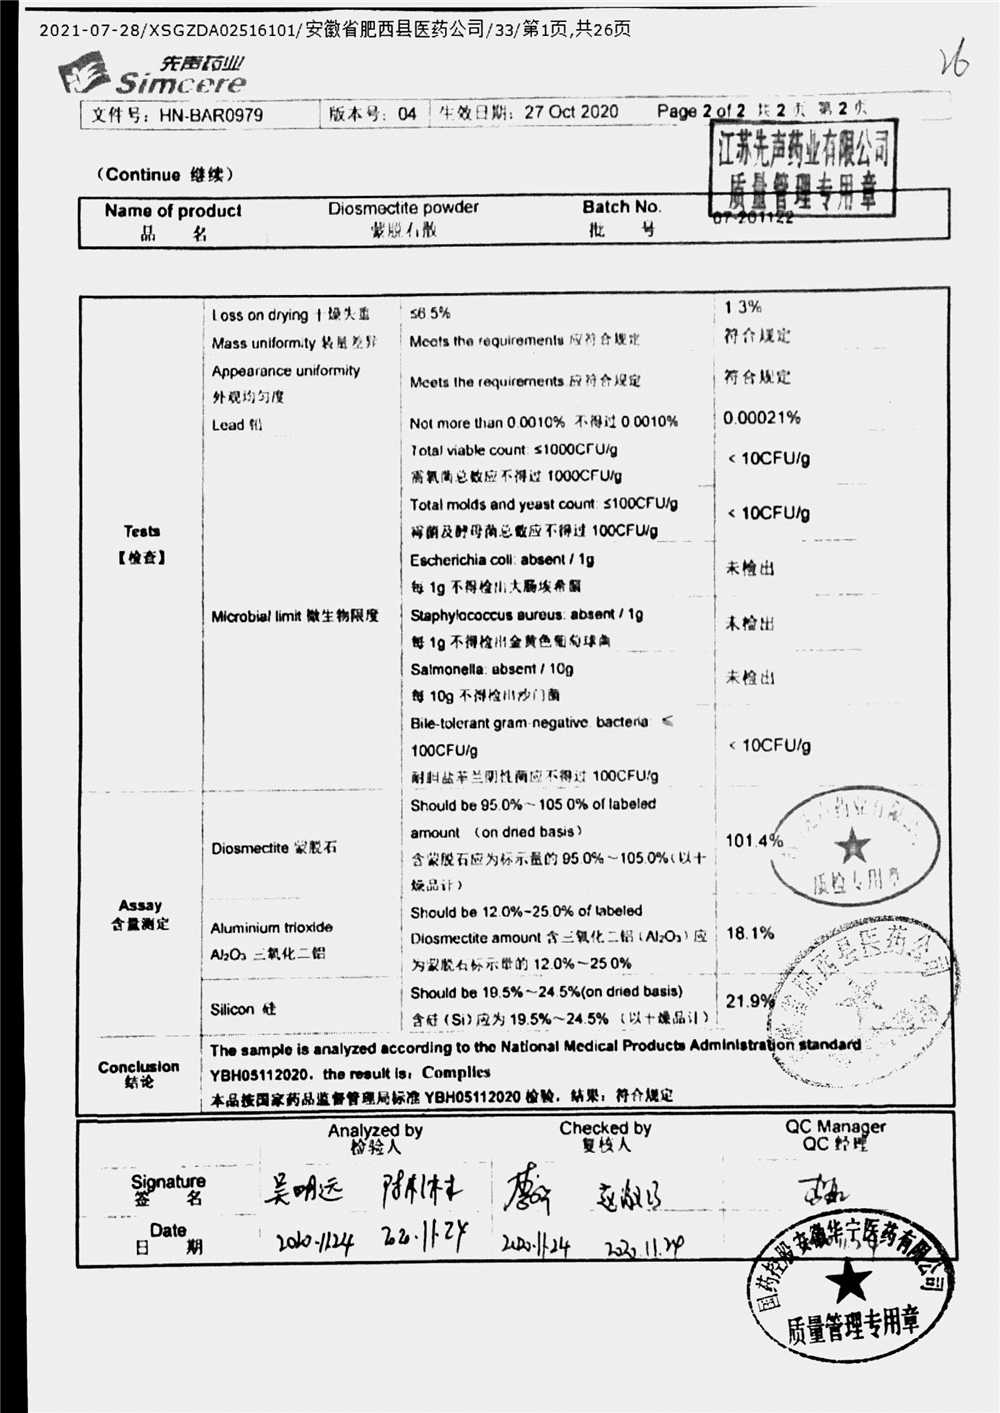 2021-07-28/XSGZDA02516101/安徽省肥西县医药公司/33/第1页,共26页
26
先声药业
Simcere
文件号：HN-BAR0979 版本号：04 生效日期：27 Oct 2020 Page 2 of 2 共 2 页 第 2 页
江苏先声药业有限公司
质量管理专用章
（Continue 继续）
Name of product Diosmectite powder Batch No. 07-201122
品 名 蒙脱石散 批 号
Tests
【检查】
Loss on drying 干燥失重 ≤6.5% 1.3%
Mass uniformity 装量差异 Meets the requirements 应符合规定 符合规定
Appearance uniformity
外观均匀度 Meets the requirements 应符合规定 符合规定
Lead 铅 Not more than 0.0010% 不得过 0.0010% 0.00021%
Microbial limit 微生物限度
Total viable count: ≤1000CFU/g
需氧菌总数应不得过 1000CFU/g
< 10CFU/g
Total molds and yeast count: ≤100CFU/g
霉菌及酵母菌总数应不得过 100CFU/g
< 10CFU/g
Escherichia coli: absent / 1g
每 1g 不得检出大肠埃希菌
未检出
Staphylococcus aureus: absent / 1g
每 1g 不得检出金黄色葡萄球菌
未检出
Salmonella: absent / 10g
每 10g 不得检出沙门菌
未检出
Bile-tolerant gram-negative bacteria: ≤
100CFU/g
耐胆盐革兰阴性菌应不得过 100CFU/g
< 10CFU/g
Assay
含量测定
Diosmectite 蒙脱石
Should be 95.0%~105.0% of labeled
amount （on dried basis）
含蒙脱石应为标示量的 95.0%~105.0%（以干
燥品计）
101.4%
质检专用章
Aluminium trioxide
Al₂O₃ 三氧化二铝
Should be 12.0%~25.0% of labeled
Diosmectite amount 含三氧化二铝（Al₂O₃）应
为蒙脱石标示量的 12.0%~25.0%
18.1%
安徽省肥西县医药公司
Silicon 硅
Should be 19.5%~24.5%(on dried basis)
含硅（Si）应为 19.5%~24.5% （以干燥品计）
21.9%
Conclusion
结论
The sample is analyzed according to the National Medical Products Administration standard
YBH05112020, the result is: Complies
本品按国家药品监督管理局标准 YBH05112020 检验，结果：符合规定
Analyzed by Checked by QC Manager
检验人 复核人 QC 经理
Signature
签 名
吴明远
Date
日 期
2020.11.24 2020.11.24 2020.11.24 2020.11.24
国药控股安徽华宁医药有限公司
质量管理专用章